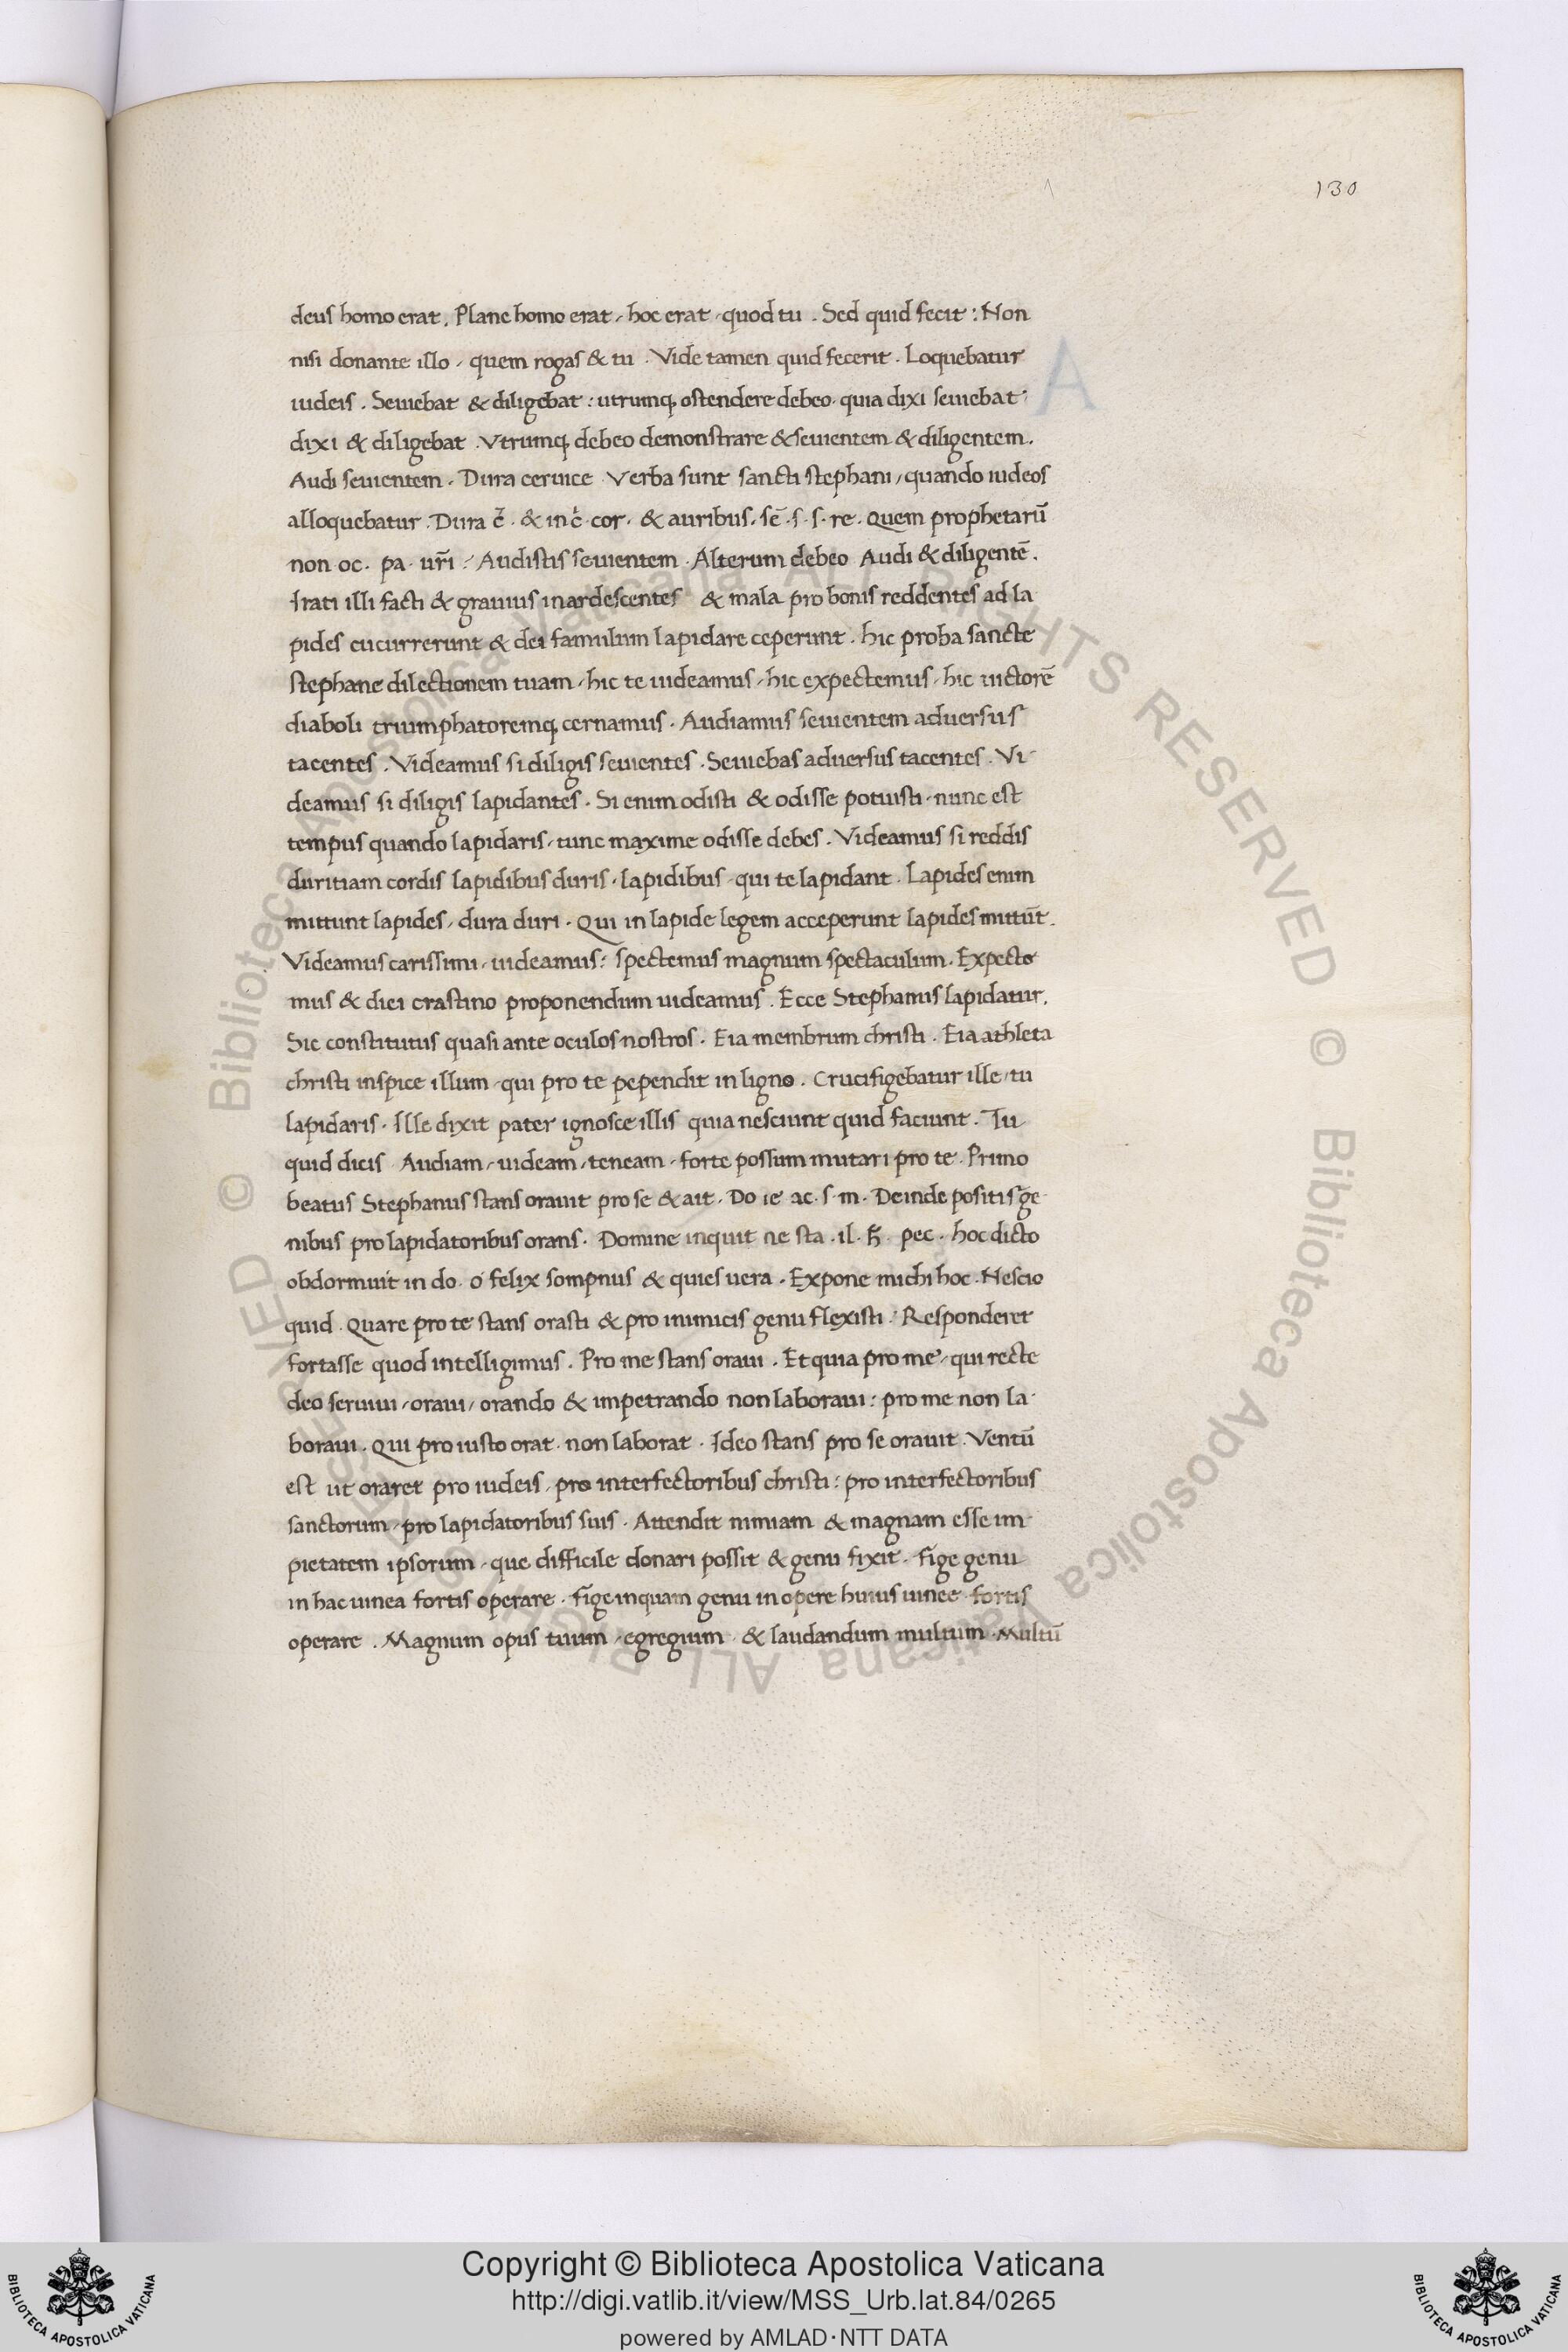 130
deus homo erat. Plane homo erat, hoc erat, quod tu. Sed quid fecit: Non
nisi donante illo, quem rogas & tu. Vide tamen quid fecerit. Loquebatur
iudeis. Seuiebat & diligebat: utrumq; ostendere debeo. quia dixi seuiebat
dixi & diligebat. Vtrumq; debeo demonstrare & seuientem & diligentem.
Audi seuientem. Dura ceruice. Verba sunt sancti stephani, quando iudeos
alloquebatur. Dura c̄. & in c̄. cor. & auribus. sē. s. s. re. Quem prophetarū
non oc. pa. ur̄i: Audistis seuientem. Alterum debeo. Audi & diligentē.
Irati illi facti & grauius inardescentes & mala pro bonis reddentes ad la
pides cucurrerunt & dei famulum lapidare ceperunt. hic proba sancte
stephane dilectionem tuam, hic te uideamus, hic expectemus, hic uictorē
diaboli triumphatoremq; cernamus. Audiamus seuientem aduersus
tacentes. Videamus si diligis seuientes. Seuiebas aduersus tacentes. Vi
deamus si diligis lapidantes. Si enim odisti & odisse potuisti. nunc est
tempus quando lapidaris, tunc maxime odisse debes. Videamus si reddis
duritiam cordis lapidibus duris. lapidibus, qui te lapidant. Lapides enim
mittunt lapides, dura duri. Qui in lapide legem acceperunt lapides mittūt.
Videamus carissimi, uideamus: spectemus magnum spectaculum. Expecte
mus & diei crastino proponendum uideamus. Ecce Stephanus lapidatur.
Sic constitutus quasi ante oculos nostros. Eia membrum christi. Eia athleta
christi inspice illum, qui pro te pependit in ligno. Crucifigebatur ille, tu
lapidaris. Ille dixit pater ignosce illis quia nesciunt quid faciunt. Tu
quid dicis. Audiam, uideam, teneam, forte possum mutari pro te. Primo
beatus Stephanus stans orauit pro se & ait. Do ie ac. s. m. Deinde positis ge
nibus pro lapidatoribus orans. Domine inquit ne sta. il. pec. hoc dicto
obdormuit in do. o felix sompnus & quies uera. Expone michi hoc. Nescio
quid. Quare pro te stans orasti & pro inimicis genu flexisti: Responderet
fortasse quod intelligimus. Pro me stans oraui. Et quia pro me, qui recte
deo seruiui, oraui, orando & impetrando non laboraui: pro me non la
boraui. Qui pro iusto orat. non laborat. Ideo stans pro se orauit. Ventū
est ut oraret pro iudeis, pro interfectoribus christi: pro interfectoribus
sanctorum, pro lapidatoribus suis. Attendit nimiam & magnam esse im
pietatem ipsorum, que difficile donari possit & genu fixit. fige genu
in hac uinea fortis operare. fige inquam genu in opere huius uinee fortis
operare. Magnum opus tuum, egregium & laudandum multum. Multū
A
© Biblioteca Apostolica Vaticana ALL RIGHTS RESERVED © Biblioteca Apostolica Vaticana ALL RIGHTS RESERVED
Copyright © Biblioteca Apostolica Vaticana
http://digi.vatlib.it/view/MSS_Urb.lat.84/0265
powered by AMLAD·NTT DATA
BIBLIOTECA APOSTOLICA VATICANA
BIBLIOTECA APOSTOLICA VATICANA